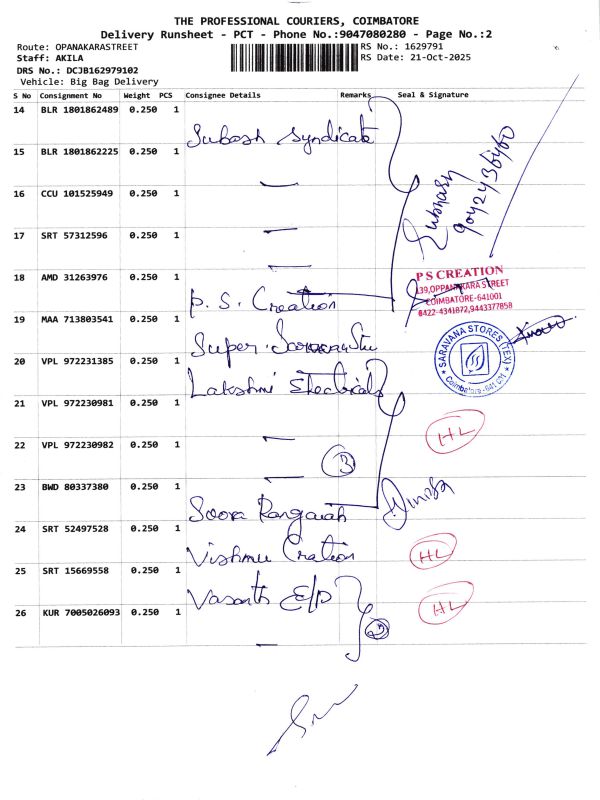 THE PROFESSIONAL COURIERS, COIMBATORE
Delivery Runsheet - PCT - Phone No.:9047080280 - Page No.:2
Route: OPANAKARASTREET RS No.: 1629791
Staff: AKILA RS Date: 21-Oct-2025
DRS No.: DCJB162979102
Vehicle: Big Bag Delivery
S No Consignment No Weight PCS Consignee Details Remarks Seal & Signature
14 BLR 1801862489 0.250 1 Subash Syndicate
15 BLR 1801862225 0.250 1
Subhash
9042436460
16 CCU 101525949 0.250 1
17 SRT 57312596 0.250 1
18 AMD 31263976 0.250 1 P. S. Creation
P S CREATION
139,OPPANAKARA STREET
COIMBATORE-641001
0422-4341072,9443377858
19 MAA 713803541 0.250 1 Super
SARAVANA STORES (TEX)
Coimbatore - 641 001
20 VPL 972231385 0.250 1 Lakshmi Electricals
21 VPL 972230981 0.250 1
HL
22 VPL 972230982 0.250 1
3
23 BWD 80337380 0.250 1 Soora Rangaiah
24 SRT 52497528 0.250 1 Vishnu Cration
HL
25 SRT 15669558 0.250 1 Vasanth E/P
HL
26 KUR 7005026093 0.250 1
2